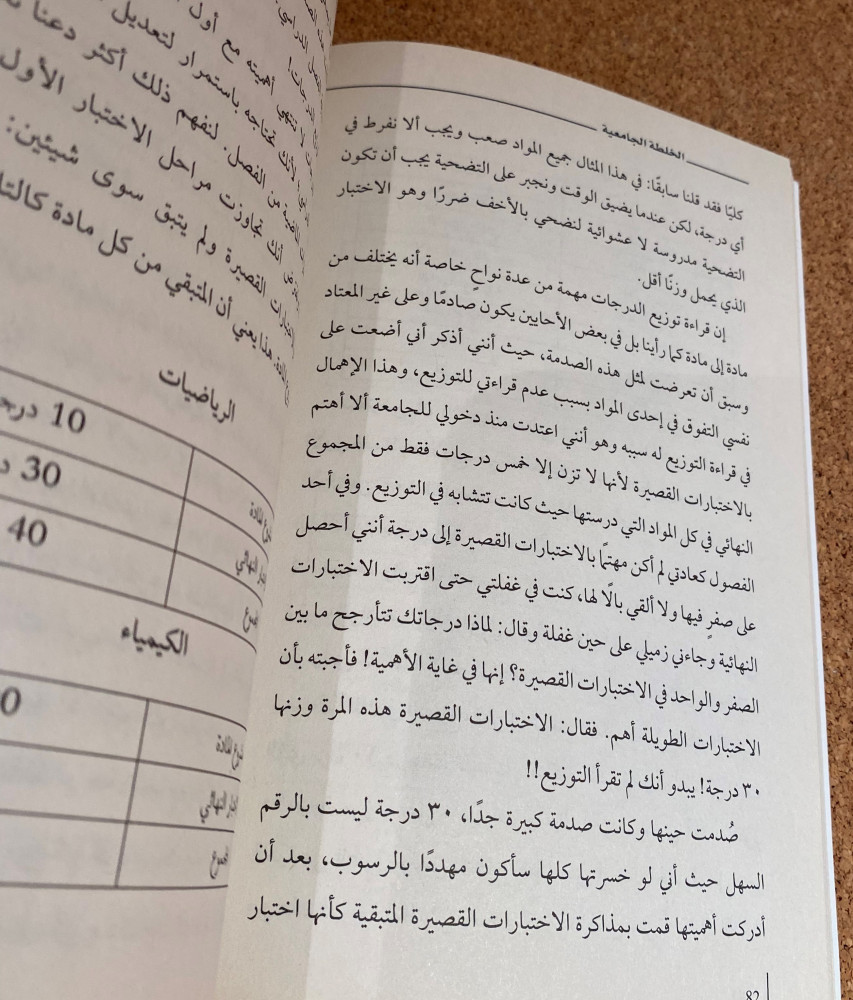 الخلطة الجامعية
كليًا فقد قلنا سابقًا: في هذا المثال جميع المواد صعب ويجب ألا نفرط في
أي درجة، لكن عندما يضيق الوقت ونجبر على التضحية يجب أن تكون
التضحية مدروسة لا عشوائية لنضحي بالأخف ضررًا وهو الاختبار
الذي يحمل وزنًا أقل.
إن قراءة توزيع الدرجات مهمة من عدة نواحٍ خاصة أنه يختلف من
مادة إلى مادة كما رأينا بل في بعض الأحايين يكون صادمًا وعلى غير المعتاد
وسبق أن تعرضت لمثل هذه الصدمة، حيث أنني أذكر أني أضعت على
نفسي التفوق في إحدى المواد بسبب عدم قراءتي للتوزيع، وهذا الإهمال
في قراءة التوزيع له سببه وهو أنني اعتدت منذ دخولي للجامعة ألا أهتم
بالاختبارات القصيرة لأنها لا تزن إلا خمس درجات فقط من المجموع
النهائي في كل المواد التي درستها حيث كانت تتشابه في التوزيع. وفي أحد
الفصول كعادتي لم أكن مهتمًا بالاختبارات القصيرة إلى درجة أنني أحصل
على صفرٍ فيها ولا ألقي بالًا لها، كنت في غفلتي حتى اقتربت الاختبارات
النهائية وجاءني زميلي على حين غفلة وقال: لماذا درجاتك تتأرجح ما بين
الصفر والواحد في الاختبارات القصيرة؟ إنها في غاية الأهمية! فأجبته بأن
الاختبارات الطويلة أهم. فقال: الاختبارات القصيرة هذه المرة وزنها
٣٠ درجة! يبدو أنك لم تقرأ التوزيع!!
صُدمت حينها وكانت صدمة كبيرة جدًا، ٣٠ درجة ليست بالرقم
السهل حيث أني لو خسرتها كلها سأكون مهددًا بالرسوب، بعد أن
أدركت أهميتها قمت بمذاكرة الاختبارات القصيرة المتبقية كأنها اختبار
82
لا تنتهي أهميته مع أول
لأنك تحتاجه باستمرار لتعديل
من الفصل. لنفهم ذلك أكثر دعنا
أنك تجاوزت مراحل الاختبار الأول
القصيرة ولم يتبق سوى شيئين:
هذا يعني أن المتبقي من كل مادة
الرياضيات
10
30
40
الكيمياء